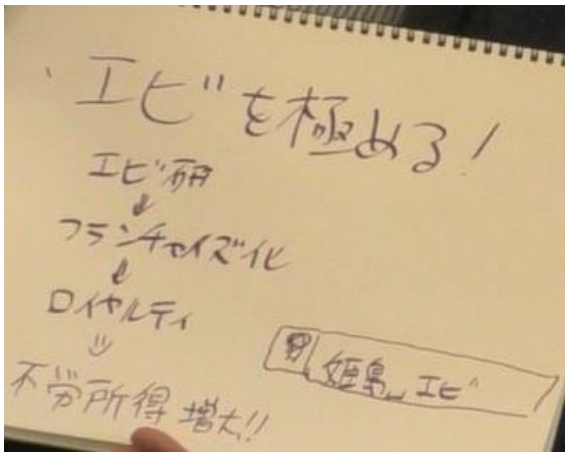 エビを極める!
エビ研
フランチャイズ化
ロイヤルティ
不労所得 増大!!
姫島 エビ